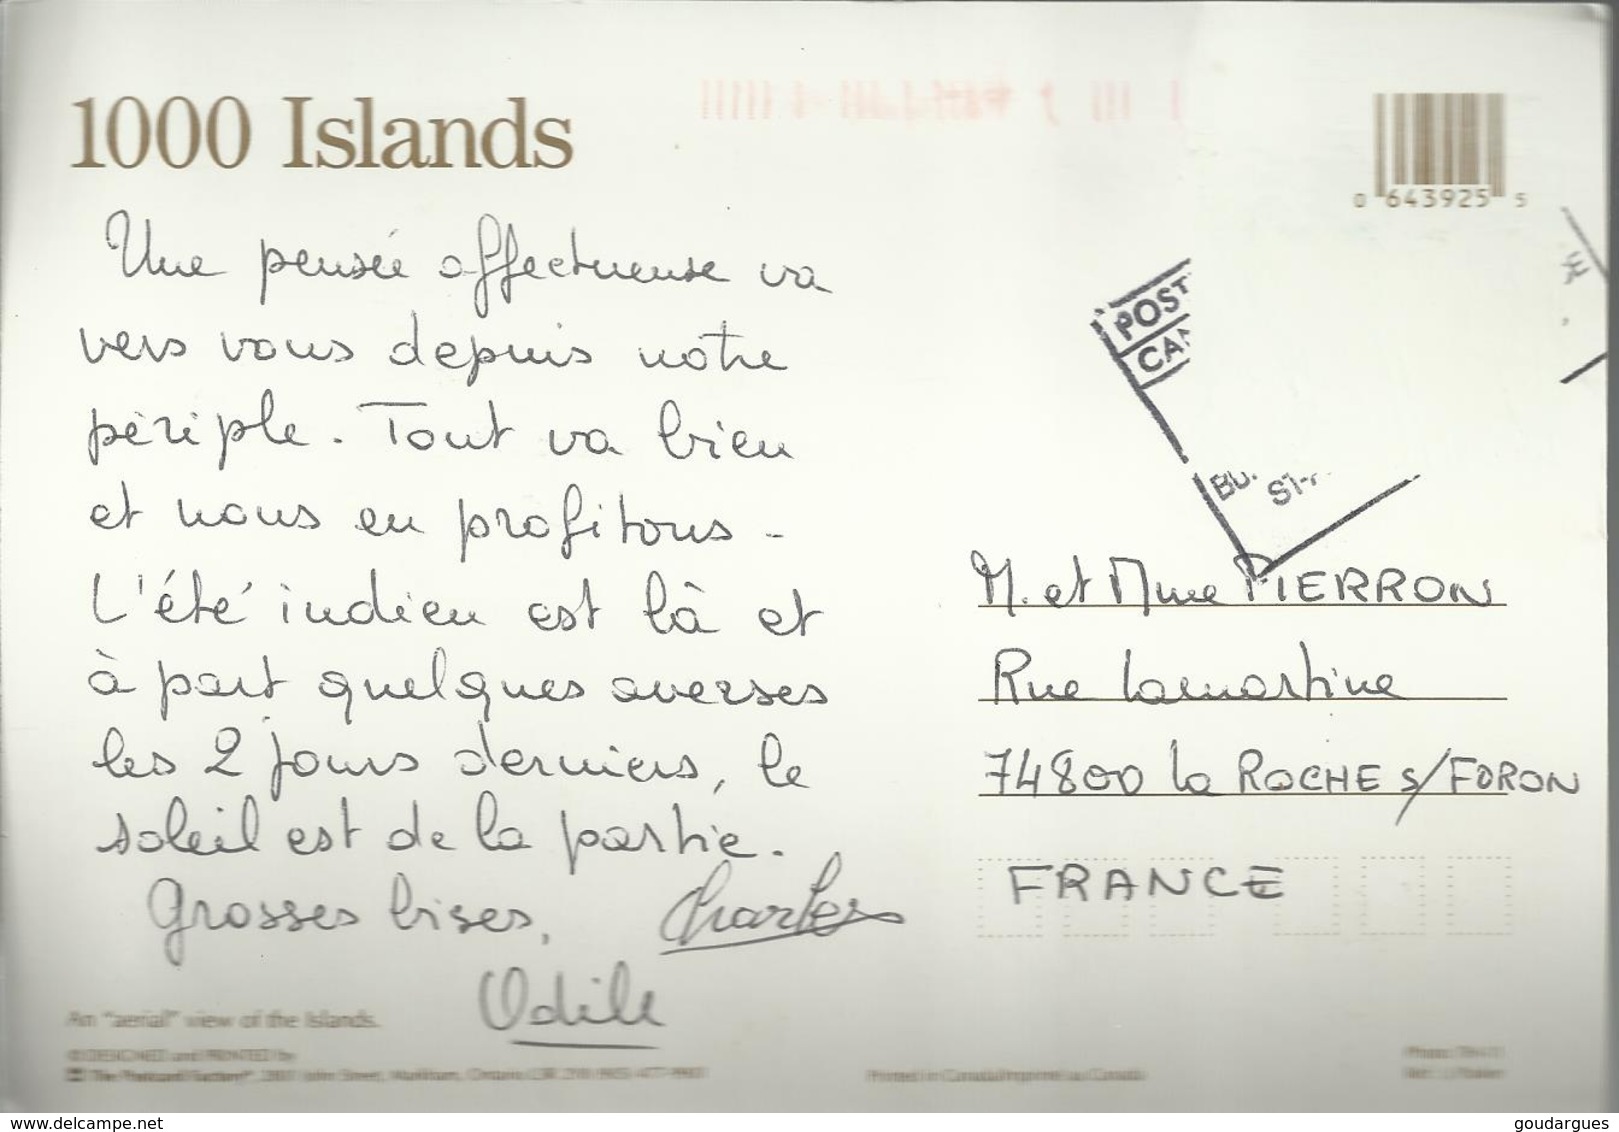 1000 Islands
0 643925 5
Une pensée affectueuse va
vers vous depuis notre
périple. Tout va bien
et nous en profitons -
L'été indien est là et
à part quelques averses
les 2 jours derniers, le
soleil est de la partie.
Grosses bises,
Charles
Odile
POST
CA
M. et Mme PIERRON
Rue Lamartine
74800 la ROCHE s/FORON
FRANCE
An "aerial" view of the Islands.
© DESIGNED and PRINTED by
The Postcard Factory
Printed in Canada/Imprimé au Canada
delcampe.net
goudargues